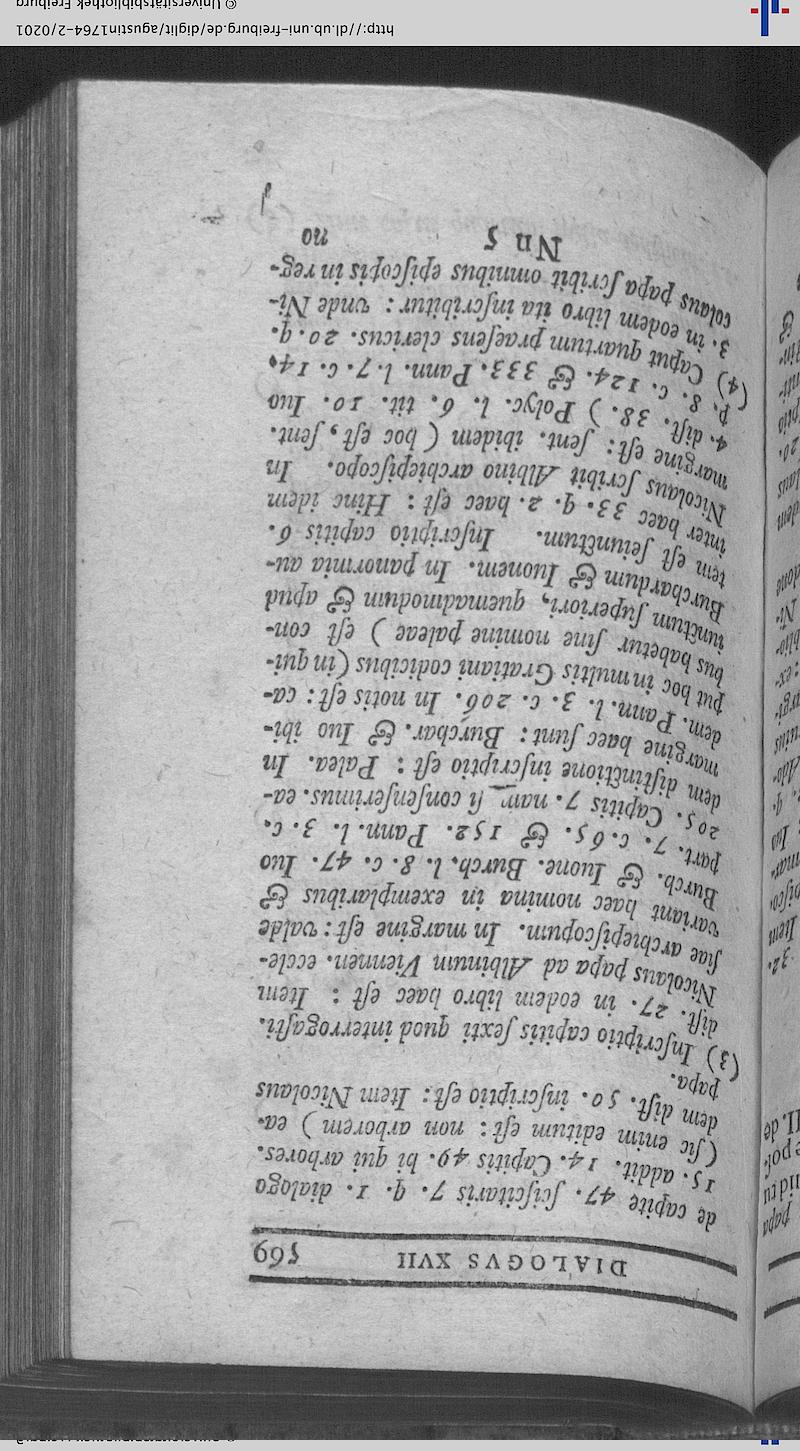 DIALOGVS XVII 569
de capite 47. sciscitaris 7. q. 1. dialogo
15. addit. 14. Capitis 49. hi qui arbores.
(sic enim editum est: non arborem) ea-
dem dist. 50. inscriptio est: Item Nicolaus
papa.
(3) Inscriptio capitis sexti quod interrogasti.
dist. 27. in eodem libro haec est: Item
Nicolaus papa ad Albinum Viennen. eccle-
siae archiepiscopum. In margine est: valde
variant haec nomina in exemplaribus &
Burch. & Iuone. Burch. l. 8. c. 47. Iuo
part. 7. c. 65. & 152. Pann. l. 3. c.
205. Capitis 7. nam si consenserimus. ea-
dem distinctione inscriptio est: Palea. In
margine haec sunt: Burchar. & Iuo ibi-
dem. Pann. l. 3. c. 206. In notis est: ca-
put hoc in multis Gratiani codicibus (in qui-
bus habetur sine nomine paleae) est con-
iunctum superiori, quemadmodum & apud
Burchardum & Iuonem. In panormia au-
tem est seiunctum. Inscriptio capitis 6.
inter haec 33. q. 2. haec est: Hinc idem
Nicolaus scribit Albino archiepiscopo. In
margine est: sent. ibidem (hoc est, sent.
4. dist. 38.) Polyc. l. 6. tit. 10. Iuo
p. 8. c. 124. & 333. Pann. l. 7. c. 14.
(4) Caput quartum praesens clericus. 20. q.
3. in eodem libro ita inscribitur: vnde Ni-
colaus papa scribit omnibus episcopis in reg-
Nn 5 no
http://dl.ub.uni-freiburg.de/diglit/agustin1764-2/0201
© Universitätsbibliothek Freiburg